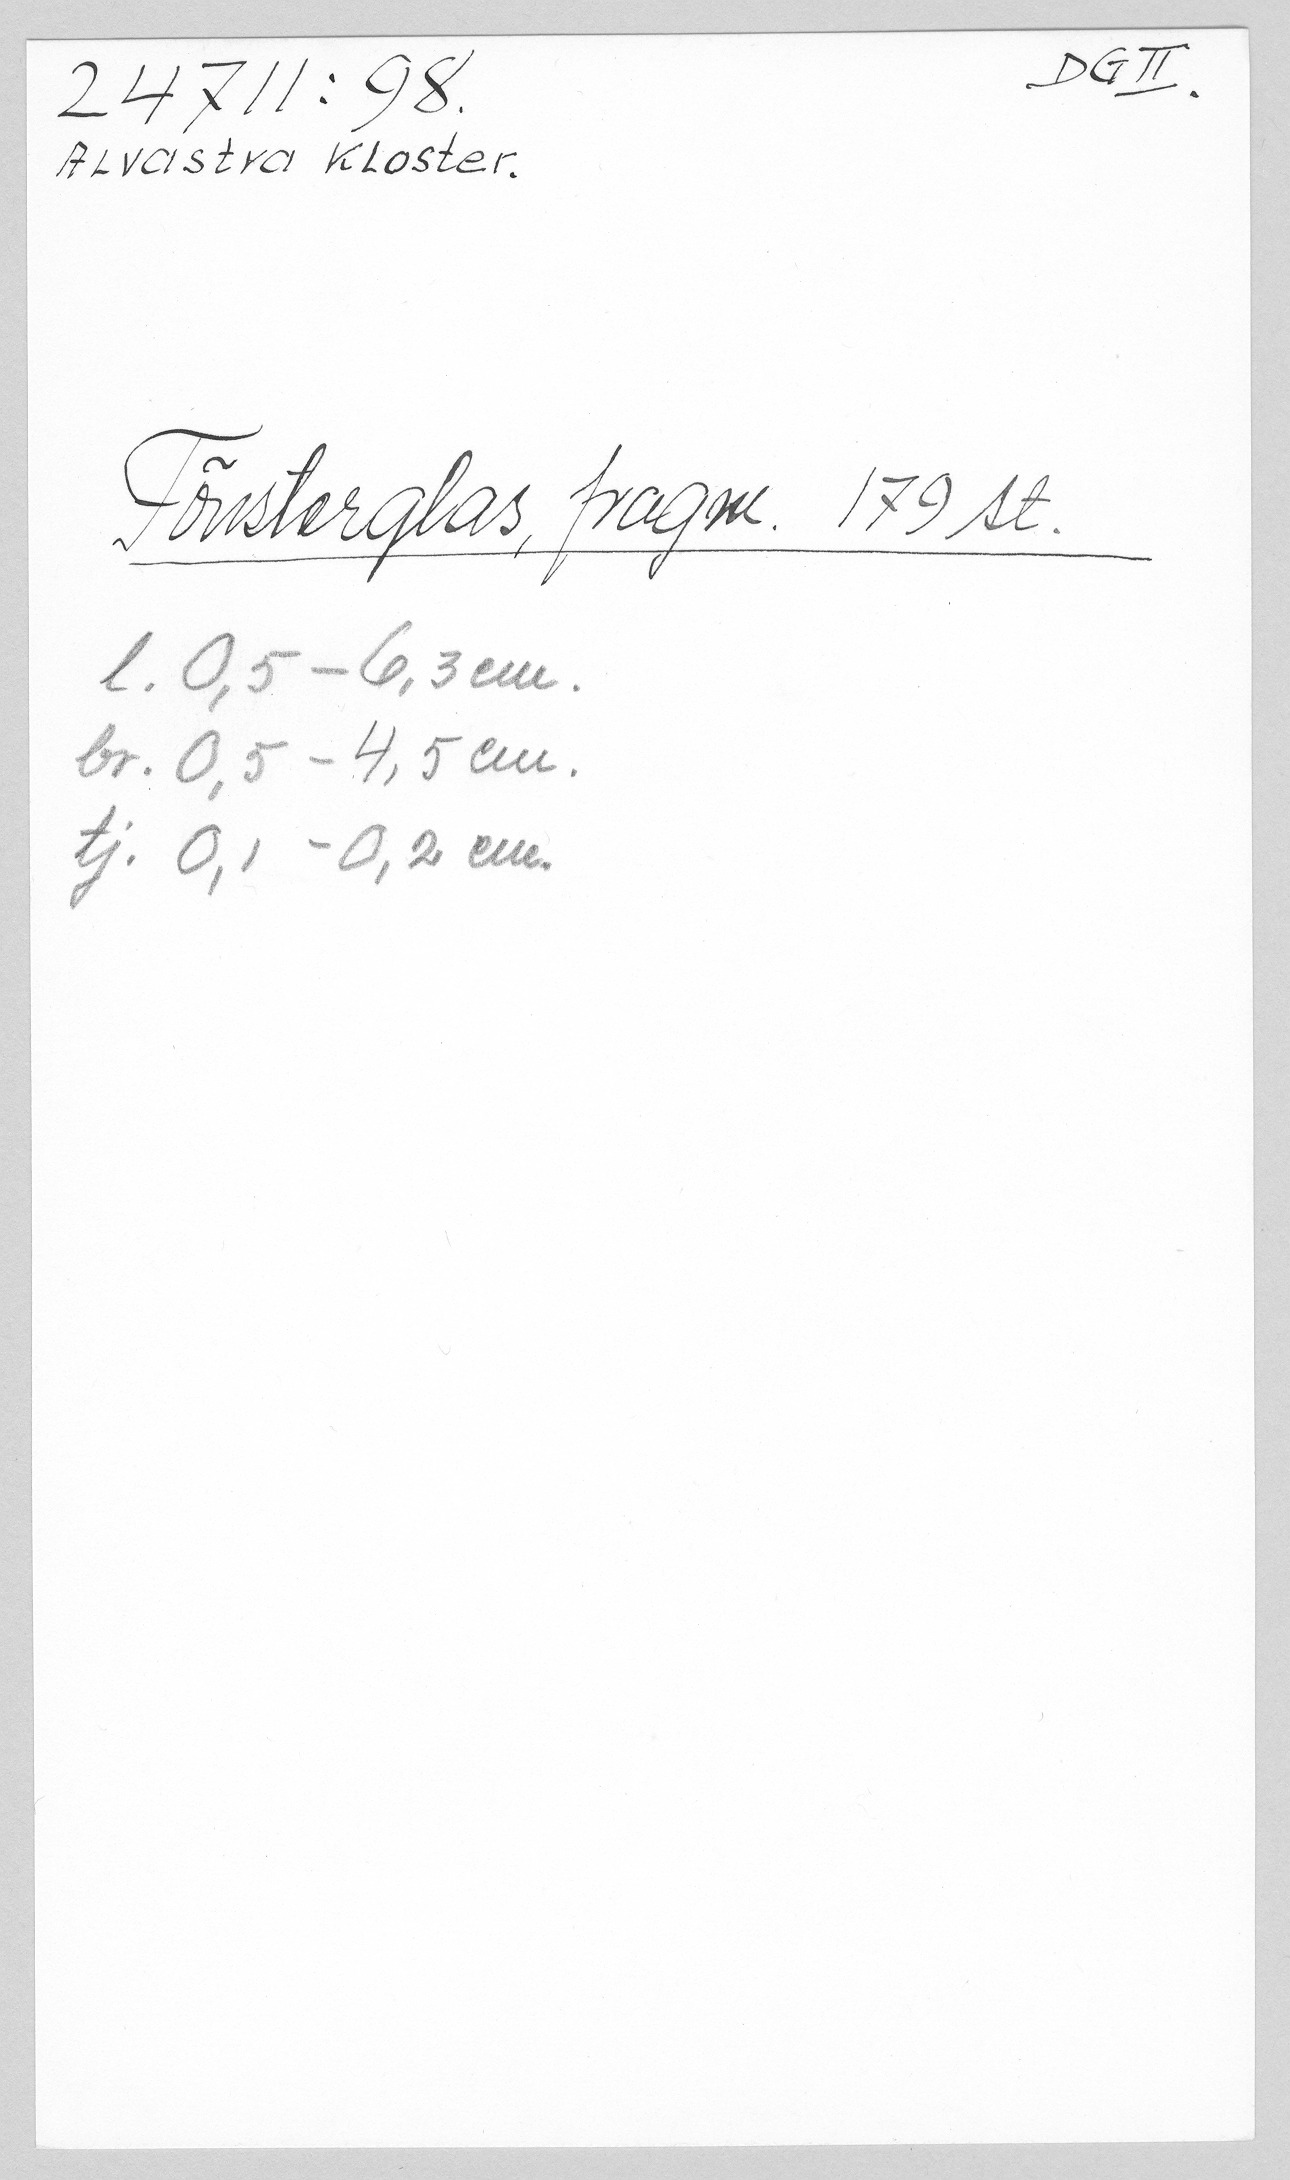 24711:98.
DG II.
Alvastra Kloster.
Fönsterglas, fragm. 179 st.
l. 0,5 – 6,3 cm.
br. 0,5 – 4,5 cm.
tj. 0,1 – 0,2 cm.